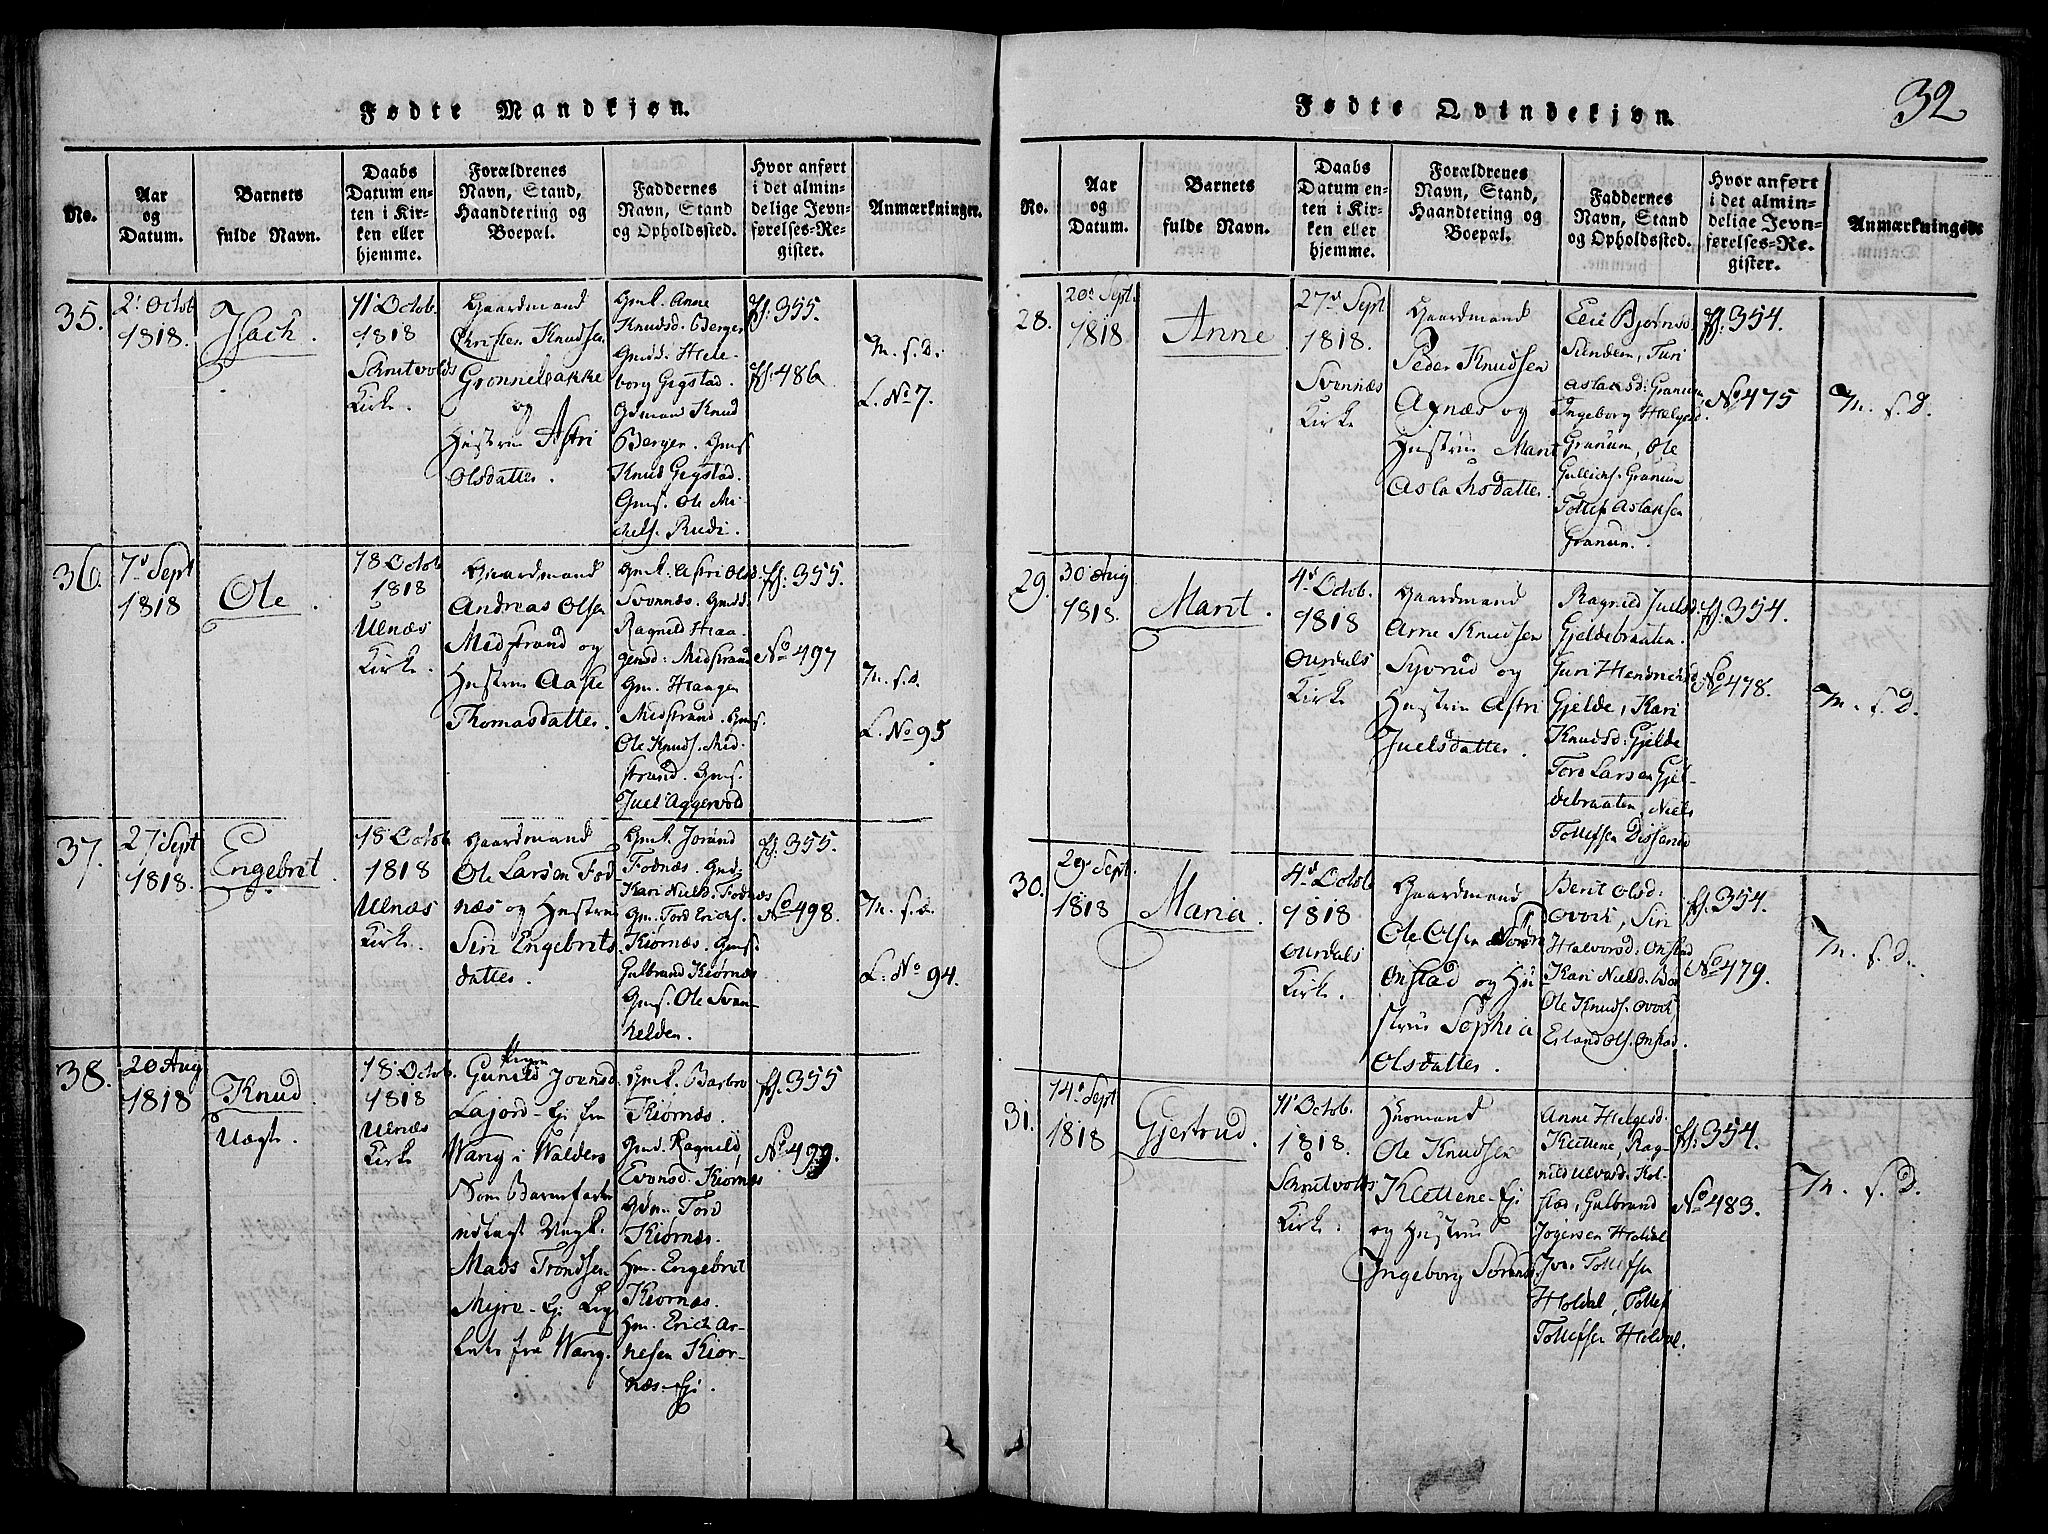 Fødte Mandkjøn.
No.
Aar
og
Datum.
Barnets
fulde Navn.
Daabs
Datum en-
ten i Kir-
ken eller
hjemme.
Forældrenes
Navn, Stand,
Haandtering og
Boepæl.
Faddernes
Navn, Stand
og Opholdssted.
Hvor anført
i det almin-
delige Jevn-
førelses-Re-
gister.
Anmærkninger.
35.
2' Octob
1818.
11' Octob.
1818
Kirke.
Gaardmand
Christen Knudsen
og
Hustrue Astri
Olsdatter.
Gmk. Anne
Knudsd. Berger
Gmdd. Hele-
borg Gigstad.
Gdmand Knud
Berger. Gms.
Knud Gigstad.
Gms. Ole Mi-
chels. Rudi.
f. 355.
f. 486
M. s. D.
L. No 7.
36.
7' Sept
1818
Ole.
18 Octob
1818
Ulnæs
Kirke.
Gaardmand
Andreas Olsen
Midstrand og
Hustrue Aaste
Thomasdatter.
Gmk. Astri Olsd.
Svennæs. Gmdd.
Ragnild Haa-
gensd: Midstrand
Gm. Haagen
Midstrand. Gms.
Ole Knuds. Mid-
strand. Gms.
Juel Aggervold
f. 355.
No 497
M. s. D.
L. No 95
37.
27' Sept
1818.
Engebrit.
18' Octob
1818
Ulnæs
Kirke.
Gaardmand
Ole Larsen Fod-
næs og Hustrue
Siri Engebrits-
datter.
Gmk. Jorand
Fodnæs. Gmd.
Kari Niels. Fodnæs
Gm. Tord Erichs.
Kiørnæs. Gms.
Gulbrand Kiørnæs
Gms. Ole Svan-
helden.
f. 355.
No 498.
M. s. D.
L. No 94.
38.
20 Aug
1818
Knud
Uægte.
18' Octob.
1818
Ulnæs
Kirke
Pigen
Gunild Joensd.
Lajord-Ej fra
Wang i Walders
Som Barnefader
udlagt Ungk.
Mads Trondsen
Myre-Ej Lige-
ledes fra Wang.
Gmk. Barbro
Kiørnæs.
Gmd. Ragnild
Evensd. Kiørnæs
Gdm. Tord
Kiørnæs.
Hm. Engebret
Kiørnæs.
Hm. Erich Ar-
nesen Kiør-
næs-Ej.
f. 355
No 499.
Fødte Qvindekjøn.
32
No.
Aar
og
Datum.
Barnets
fulde Navn.
Daabs
Datum en-
ten i Kir-
ken eller
hjemme.
Forældrenes
Navn, Stand,
Haandtering og
Boepæl.
Faddernes
Navn, Stand
og Opholdssted.
Hvor anført
i det almin-
delige Jevn-
førelses-Re-
gister.
Anmærkninger
28.
20' Sept.
1818
Anne
27' Sept
1818.
Svennæs
Kirke
Gaardmand
Peder Knudsen
Axnæs og
Hustrue Marit
Aslaksdatter.
Eli Bjørnsd
Sundem, Turi
Aslaksd: Granum,
Ingeborg Helgesd
Granum, Ole
Gulliks. Granum
Tollef Aslaksen
Granum.
f. 354.
No 475
M. s. D.
29.
30' Aug
1818.
Marit.
4' Octob.
1818
Ourdals
Kirke
Gaardmand
Arne Knudsen
Syvrud og
Hustrue Astri
Juelsdatter.
Ragnild Juelsd.
Gjeldebraaten.
Turi Hendriksd
Gjelde, Kari
Knudsd. Gjelde
Tord Larsen Gjel-
debraaten, Niels
Tollefsen Disserud
f. 354.
No 478.
M. s. D.
30.
29' Sept.
1818
Maria.
4' Octob
1818.
Ourdals
Kirke.
Gaardmand
Ole Olsen Nordre
Onstad og Hu-
strue Sophia
Olsdatter.
Berit Olsd:
Qvork, Siri
Halvorsd. Onstad
Kari Nielsd.
Ole Knuds. Qvork,
Erland Ols. Onstad.
f. 354.
No 479.
M. s. D.
31.
14' Sept
1818
Gjertrud.
11' Octob.
1818.
Kirke.
Huusmand
Ole Knudsen
Klettene-Ej
og Hustrue
Ingeborg Sørens-
datter
Anne Helgesd.
Klettene, Rag-
nild Ulvesd. Kol-
stad, Gulbrand
Jørgensen Holdal
Iver Tollefsen
Holdal, Tollef
Tollefsen Holdal.
f. 354.
No 483.
M. s. D.